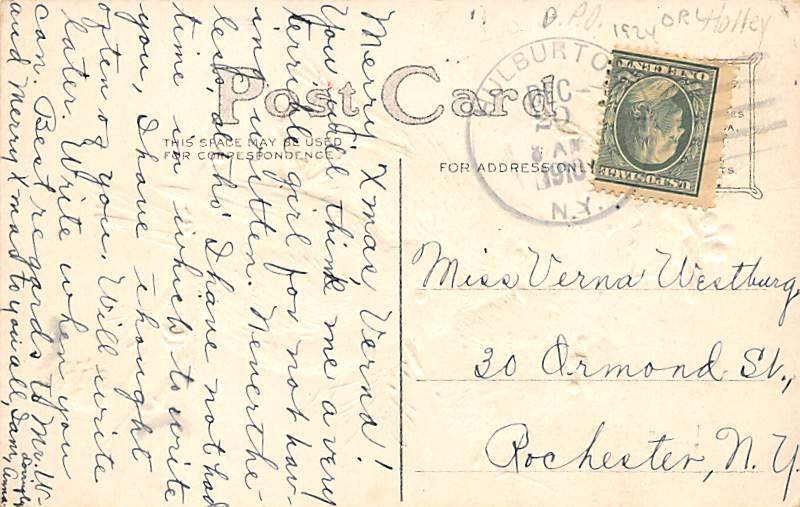 D.P.O. 1924 OR Holley
Post Card
THIS SPACE MAY BE USED
FOR CORRESPONDENCE
FOR ADDRESS ONLY
HULBURTO
DEC
AM
N.Y.
U.S. POSTAGE
ONE CENT
Merry Xmas, Verna!
You will think me a very
terrible girl for not hav-
ing written. Neverthe-
less, altho' I have not had
time in which to write
you, I have thought
often of you. Will write
later. Write when you
can. Best regards to Mr. W-
and Merry Xmas to you all,
Anna.
Miss Verna Westburg,
30 Ormond St.,
Rochester, N.Y.